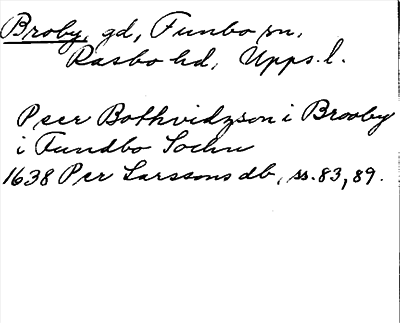 Broby, gd, Funbo sn,
Rasbo hd, Upps. l.
Peer Bothvidzson i Brooby
i Fundbo Sochn
1638 Per Larssons db, ss. 83, 89.